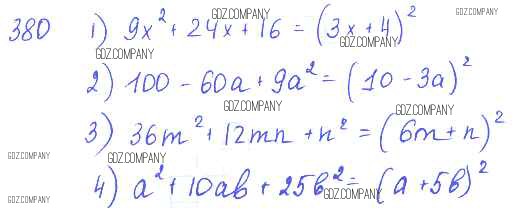 380 1) 9x² + 24x + 16 = (3x + 4)²
2) 100 - 60a + 9a² = (10 - 3a)²
3) 36m² + 12mn + n² = (6m + n)²
4) a² + 10ab + 25b² = (a + 5b)²
GDZ.COMPANY
GDZ.COMPANY
GDZ.COMPANY
GDZ.COMPANY
GDZ.COMPANY
GDZ.COMPANY
GDZ.COMPANY
GDZ.COMPANY
GDZ.COMPANY
GDZ.COMPANY
GDZ.COMPANY